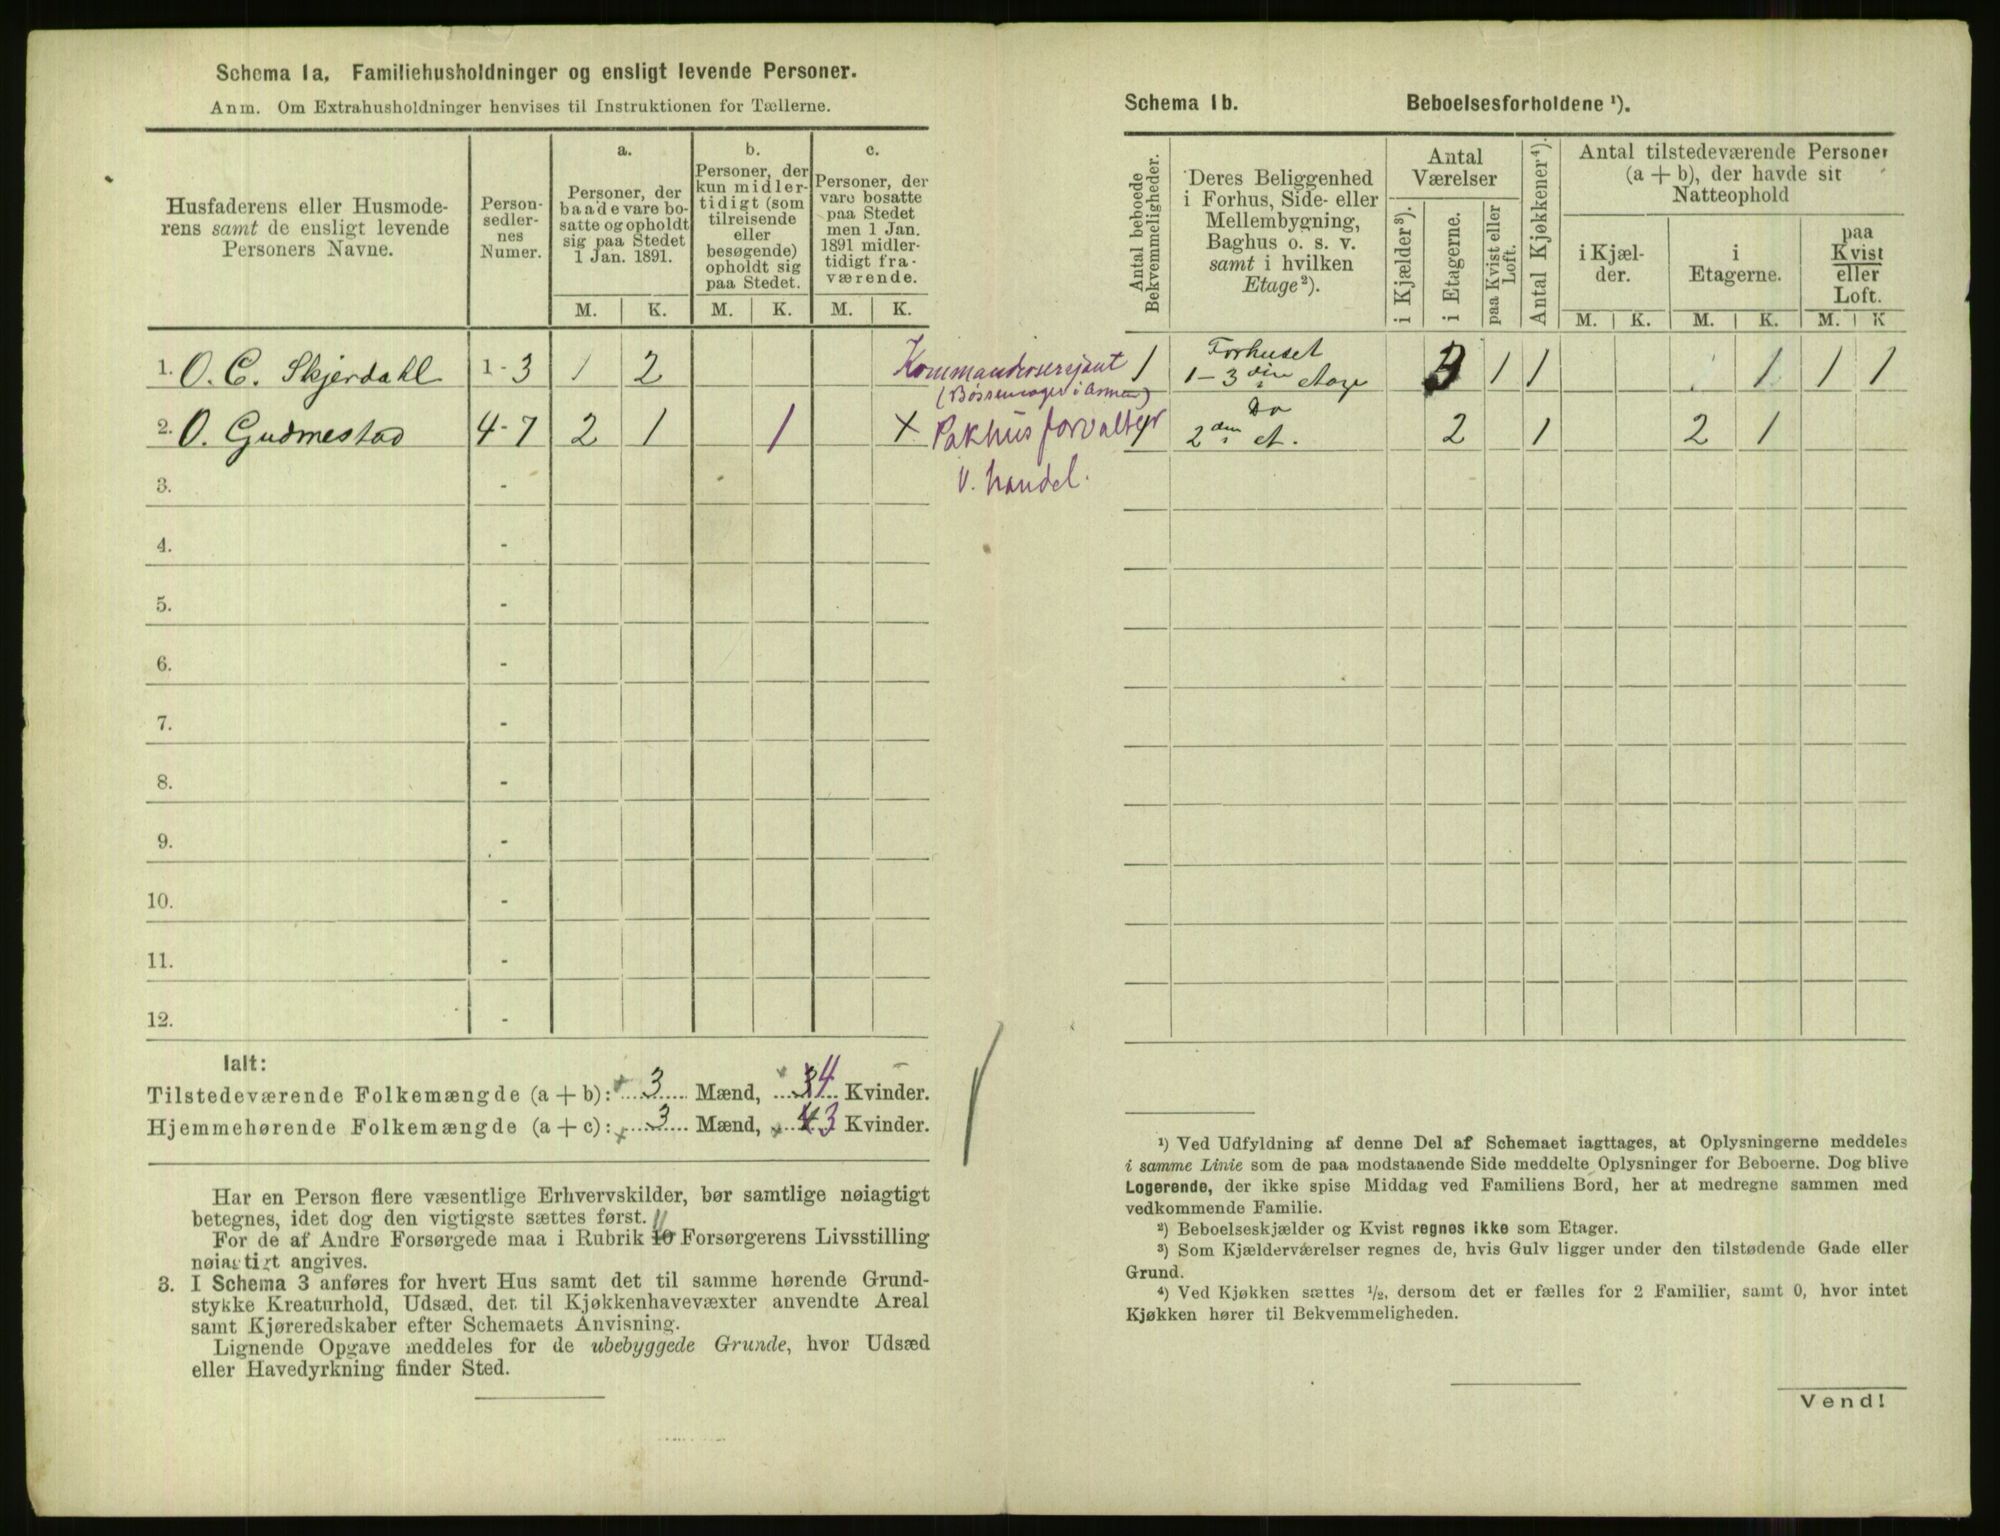 Schema 1a. Familiehusholdninger og ensligt levende Personer.
Anm. Om Extrahusholdninger henvises til Instruktionen for Tællerne.
Husfaderens eller Husmode-
rens samt de ensligt levende
Personers Navne.
Person-
sedler-
nes
Numer.
a.
Personer, der
baade vare bo-
satte og opholdt
sig paa Stedet
1 Jan. 1891.
b.
Personer, der
kun midler-
tidigt (som
tilreisende
eller
besøgende)
opholdt sig
paa Stedet.
c.
Personer, der
vare bosatte
paa Stedet
men 1 Jan.
1891 midler-
tidigt fra-
værende.
M. K. M. K. M. K.
1. O. C. Skjerdahl 1-3 1 2 Kommandersersjant
(Bøssemager i Armeen)
2. O. Gudmestad 4-7 2 1 1 X Pakhusforvalter
v. handel.
3. -
4. -
5. -
6. -
7. -
8. -
9. -
10. -
11. -
12. -
Ialt:
Tilstedeværende Folkemængde (a + b): 3 Mænd, 34 Kvinder.
Hjemmehørende Folkemængde (a + c): 3 Mænd, 43 Kvinder.
Har en Person flere væsentlige Erhvervskilder, bør samtlige nøiagtigt
betegnes, idet dog den vigtigste sættes først.
For de af Andre Forsørgede maa i Rubrik 10 11 Forsørgerens Livsstilling
nøiagtigt angives.
3. I Schema 3 anføres for hvert Hus samt det til samme hørende Grund-
stykke Kreaturhold, Udsæd, det til Kjøkkenhavevæxter anvendte Areal
samt Kjøreredskaber efter Schemaets Anvisning.
Lignende Opgave meddeles for de ubebyggede Grunde, hvor Udsæd
eller Havedyrkning finder Sted.
Schema 1b. Beboelsesforholdene ¹).
Antal beboede
Bekvemmeligheder.
Deres Beliggenhed
i Forhus, Side- eller
Mellembygning,
Baghus o. s. v.
samt i hvilken
Etage²).
Antal
Værelser
i Kjælder³).
i Etagerne.
paa Kvist eller
Loft.
Antal Kjøkkener⁴).
Antal tilstedeværende Personer
(a + b), der havde sit
Natteophold
i Kjæl-
der.
i
Etagerne.
paa
Kvist
eller
Loft.
M. K. M. K. M. K
1 Forhuset
1-3 die etage 3 1 1 1 1 1
1 Do
2 den et. 2 1 2 1
¹) Ved Udfyldning af denne Del af Schemaet iagttages, at Oplysningerne meddeles
i samme Linie som de paa modstaaende Side meddelte Oplysninger for Beboerne. Dog blive
Logerende, der ikke spise Middag ved Familiens Bord, her at medregne sammen med
vedkommende Familie.
²) Beboelseskjælder og Kvist regnes ikke som Etager.
³) Som Kjælderværelser regnes de, hvis Gulv ligger under den tilstødende Gade eller
Grund.
⁴) Ved Kjøkken sættes ½, dersom det er fælles for 2 Familier, samt 0, hvor intet
Kjøkken hører til Bekvemmeligheden.
Vend!